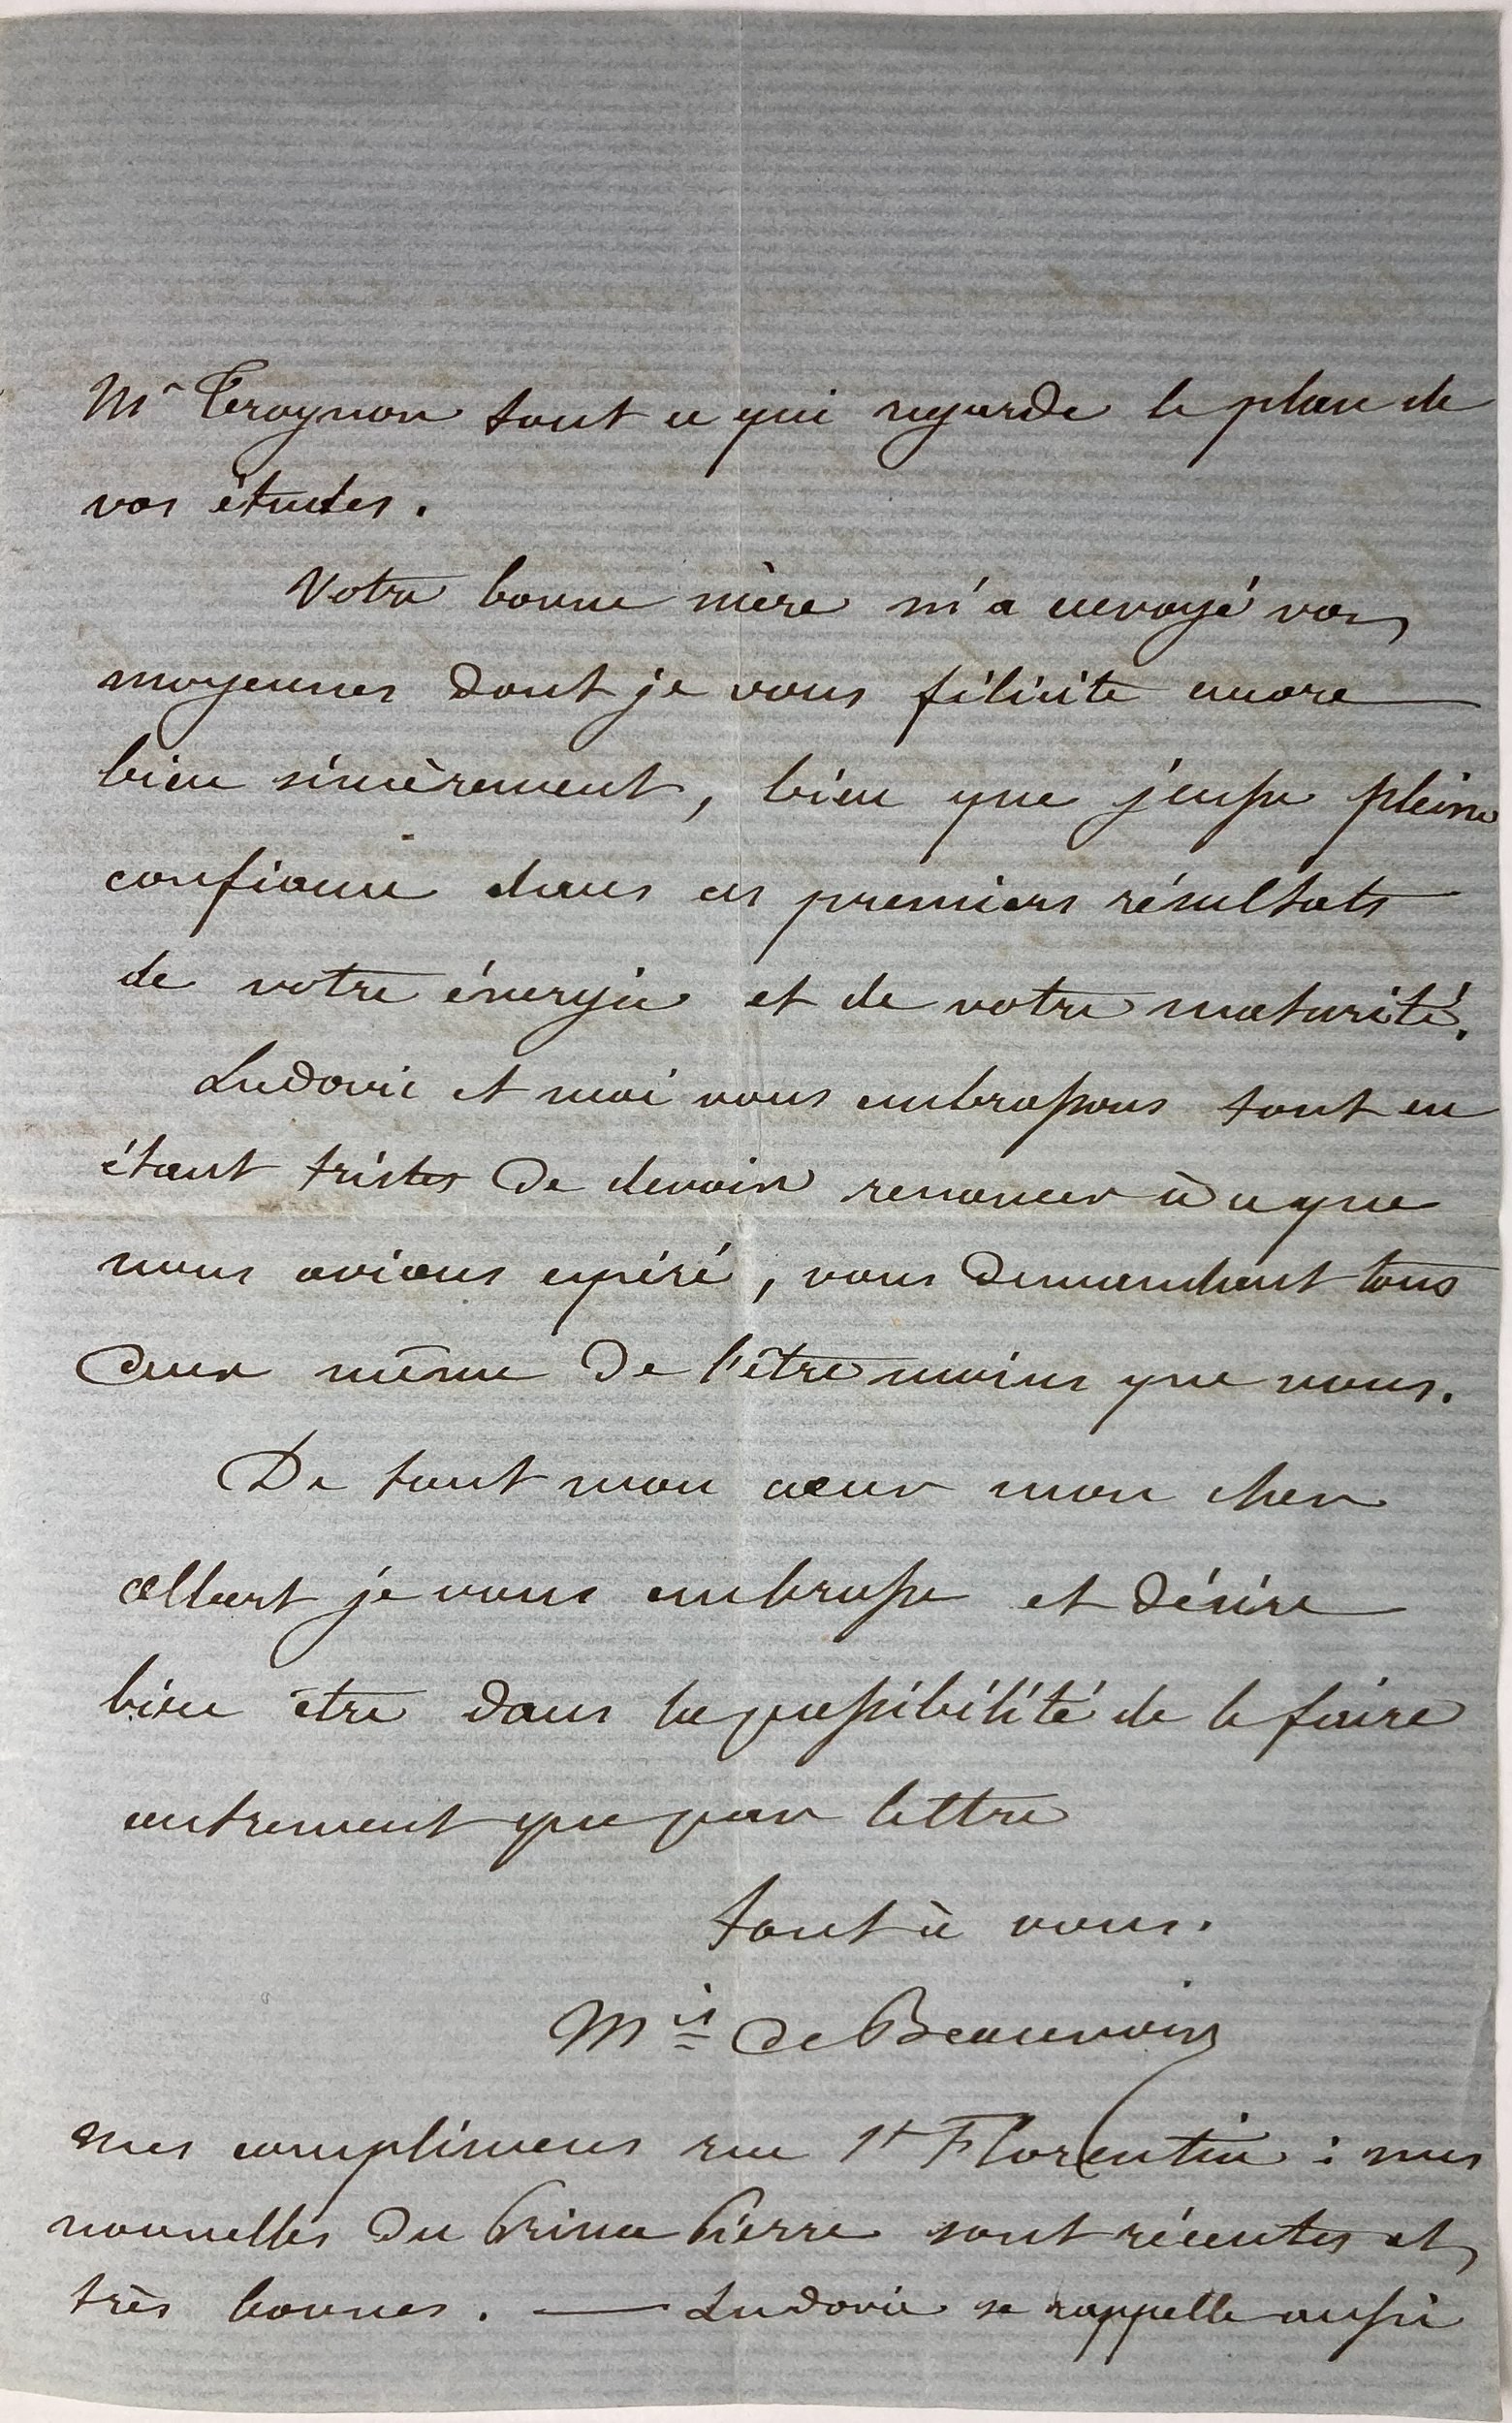 Mr Trognon tout ce qui regarde le plan de
vos études.
Votre bonne mère m'a envoyé vos
moyennes dont je vous félicite encore
bien sincèrement, bien que j'eusse pleine
confiance dans ces premiers résultats
de votre énergie et de votre maturité.
Ludovic et moi vous embrassons tout en
étant tristes de devoir renoncer à ce que
nous avions espéré, vous demandant tous
deux même de l'être moins que nous.
De tout mon cœur mon cher
Albert je vous embrasse et désire
bien être dans la possibilité de le faire
autrement que par lettre
tout à vous.
Mis de Beauvoir
mes complimens rue St Florentin : mes
nouvelles du Prince Pierre sont récentes et
très bonnes. — Ludovic se rappelle aussi